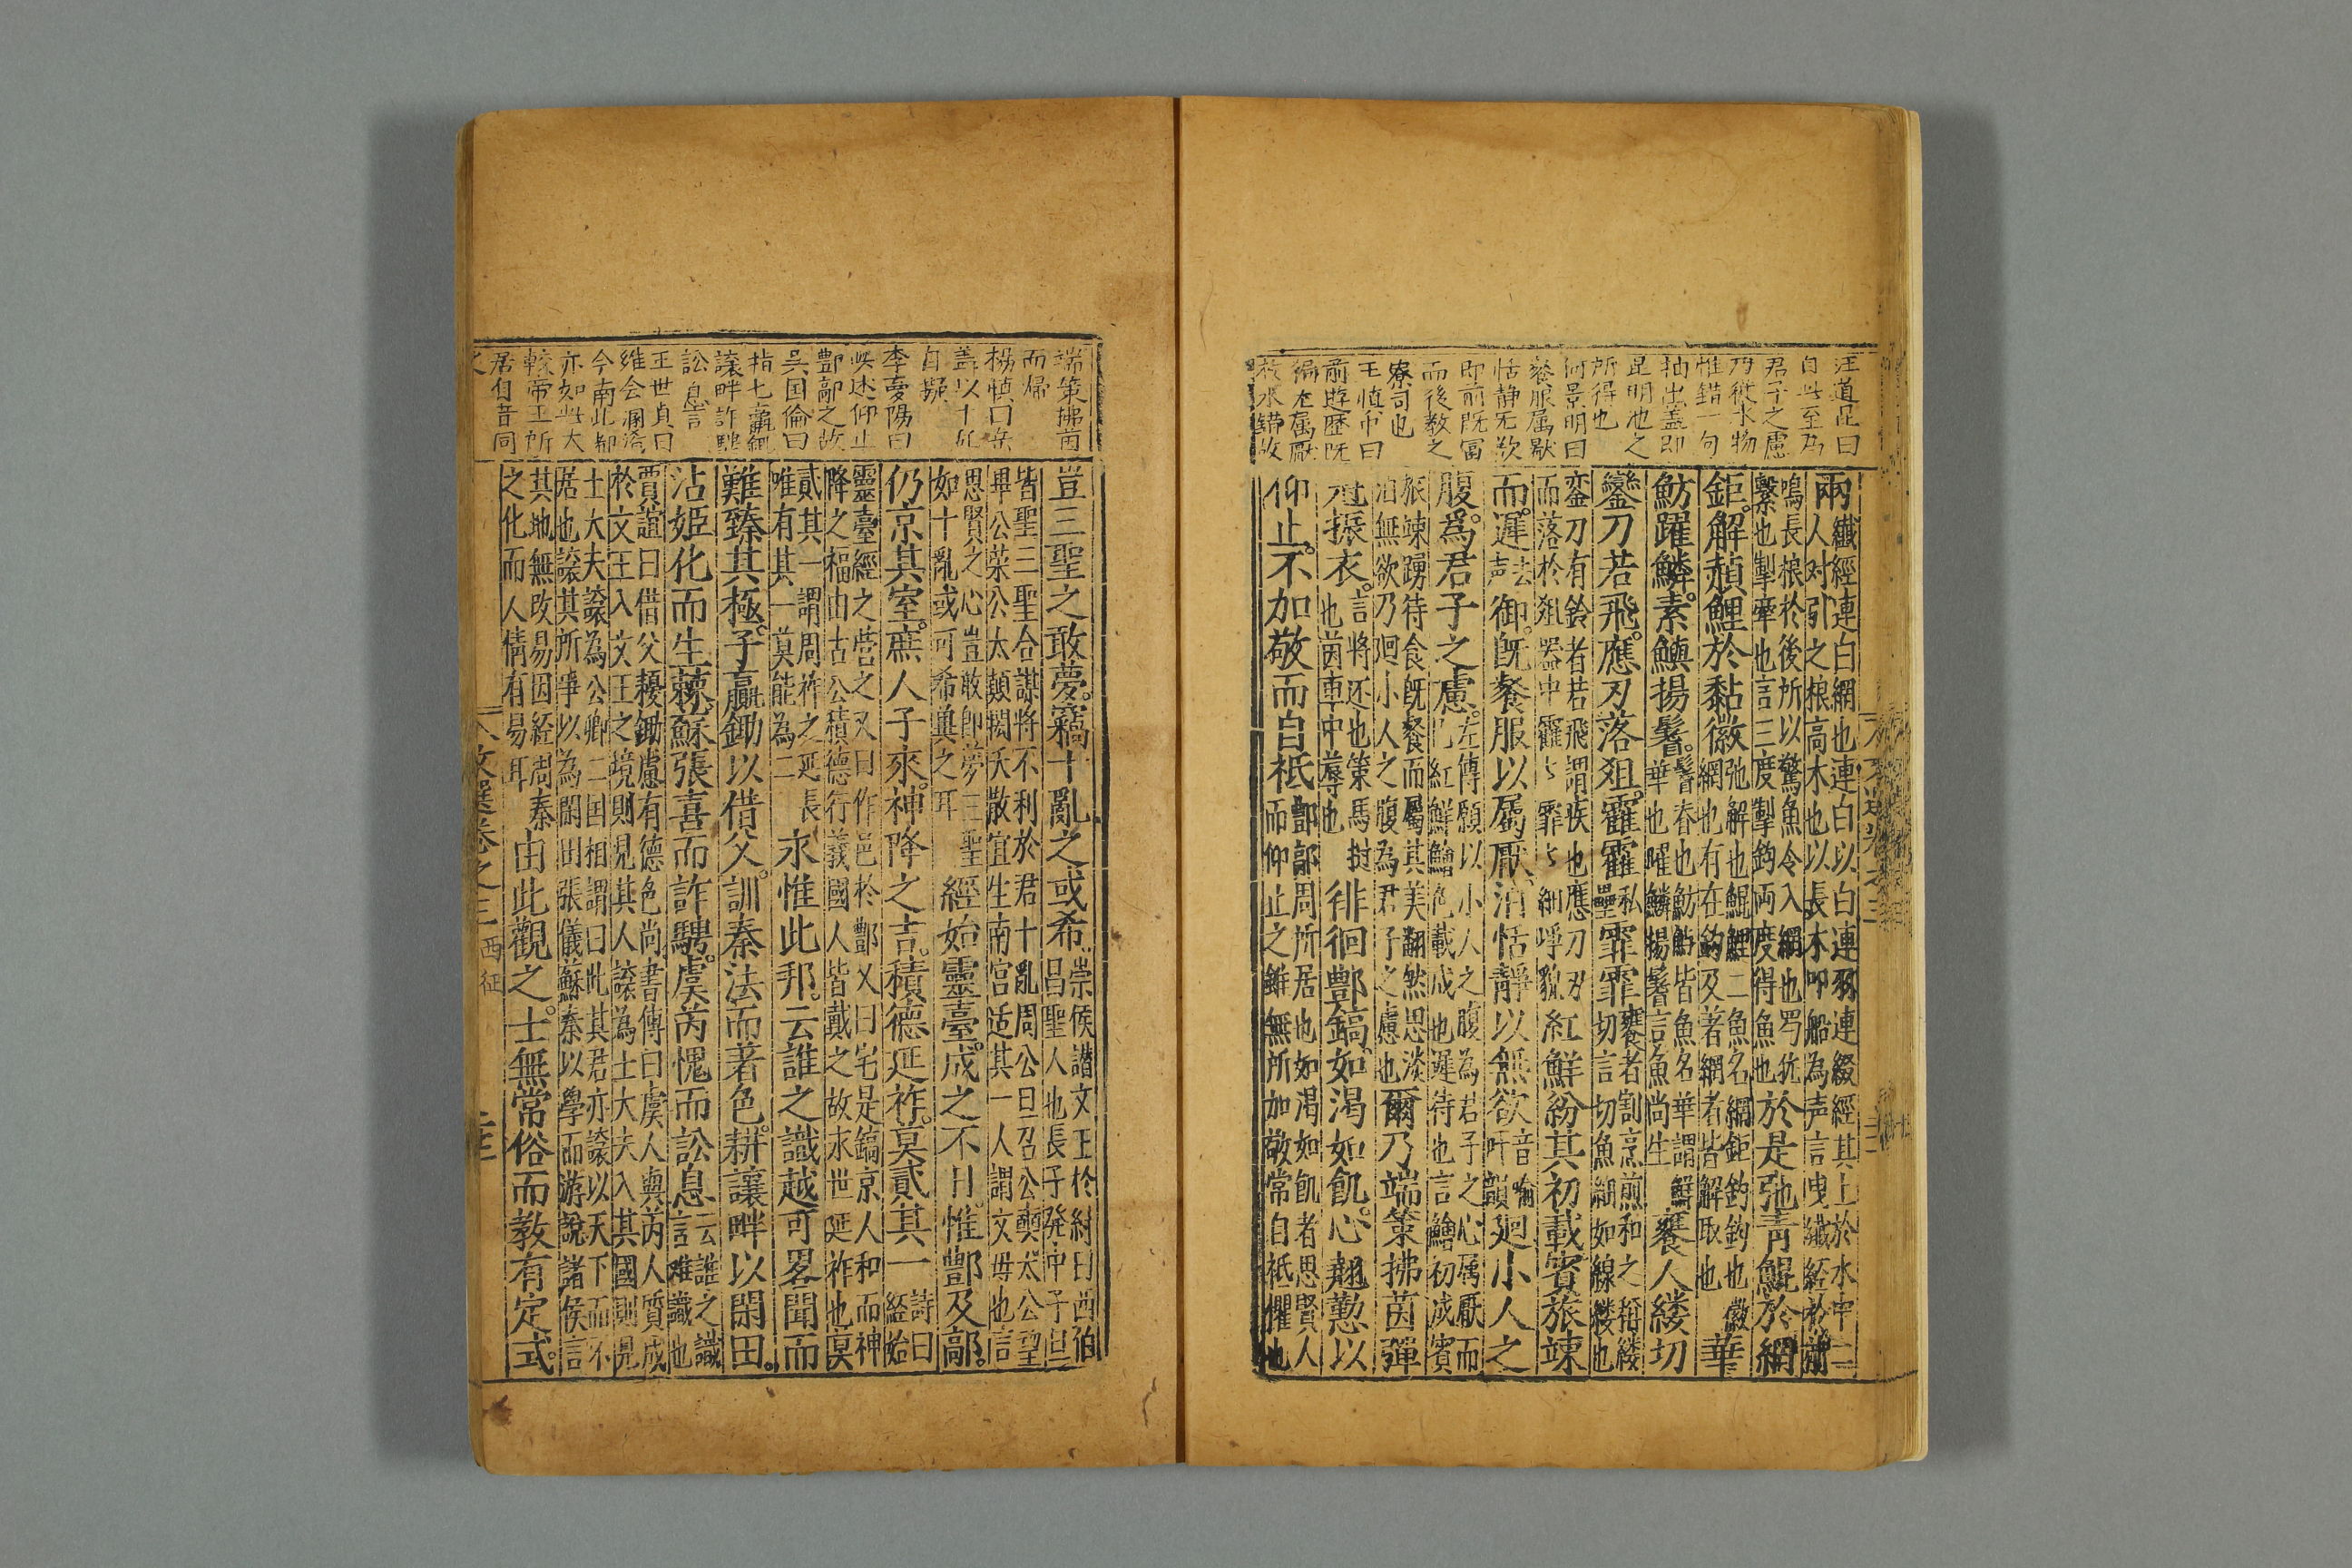 汪道昆曰
自此至為
君子之慮
乃從水物
惟錯一句
抽出蓋即
昆明池之
所得也
何景明曰
餐服属厭
恬静无欲
即前既富
而後教之
寮司也
王慎中曰
前遊歴既
徧左属厭
於水錯故
兩
纎經連白網也連白以白連羽連綴經其上於水中二
人对引之桹高木也以長木叩船為声言曳纎経於前
鳴長桹於後所以驚魚令入網也罗犹
繫也掣牽也言三度掣鈎兩度得魚也
於是弛青鯤於網
鉅。解頳鯉於黏徽
弛解也鯤鯉二魚名網鉅鈎鈎也徽
網也有在鈎及著網者皆解取也
華
魴躍鱗。素鱮揚鬐。
鬐脊也魴鮊皆魚名華謂鮮
華也曜鱗揚鬐言魚尚生
饔人縷切
鑾刀若飛。應刃落俎。霍霍霏霏
饔者割烹煎和之稱縷
切言切魚細如線縷也
鑾刀有鈴者若飛謂疾也應刀刃
而落於俎器中霍霍霏霏細
紅鮮紛其初載賓旅竦
而。遲御。旣餐服以属厭。泊恬靜以無欲
廻小人之
腹。爲君子之慮。
左傳願以小人之腹為君子之心属厭而
已紅鮮鱠色載成也遲待也言鱠初成賓
旅竦踴待食旣餐而屬其美翻然思淡
泊無欲乃廻小人之腹為君子之慮也
爾乃端策拂茵彈
冠振衣。
言將还也策馬挝
也茵車中蓐也
徘徊酆鎬。如渴如飢。心翹懃以
仰止。不加敬而自祗
酆鄗周所居也如渴如飢者思賢人
而仰止之雖無所加敬常自祗懼也
端策拂茵
而歸
楊慎曰豈
蓋以十亂
自擬
李夢陽曰
此述仰止
豐鄗之故
吳国倫曰
指七襄經
讓畔詐騁
訟息言
王世貞曰
維会瀾滀
今南此都
亦如此大
較帝王所
居自昔同
之
豈三聖之敢夢。竊十亂之或希。
崇侯譖文王於紂曰西伯
昌聖人也長子發中子旦
皆聖三聖合謀將不利於君十亂周公旦召公奭太公望
畢公榮公太顛閎夭散宜生南宮适其一人謂文母也言
思賢之心豈敢即夢三聖
如十亂或可希兾之耳
經始靈臺。成之不日。惟酆及鄗。
仍京其室。庶人子來。神降之吉。積德延祚。莫貳其一
詩曰
經始
靈臺經之営之又曰作邑於酆又曰宅是鎬京人和而神
降之福由古公積德行義國人皆戴之故永世延祚也莫
貳其一謂周祚之延長
唯有其一莫能為二
永惟此邦。云誰之識越可畧聞而
難臻其極。子贏鋤以借父。訓秦法而著色。耕讓畔以閑田。
沾姬化而生蕀。蘇張喜而詐騁。虞芮愧而訟息
云誰之識
言难識也
賈誼曰借父耰鋤慮有德色尚書傳曰虞人與芮人質成
於文王入文王之境則見其人譲為士大夫入其國則見
士大夫譲為公卿二国相謂曰此其君亦譲以天下而不
居也譲其所爭以為閑田張儀蘇秦以學而游說諸侯言
其地無改易因経周秦
之化而人情有易耳
由此觀之。士無常俗而敎有定式。
文選卷之三 西征